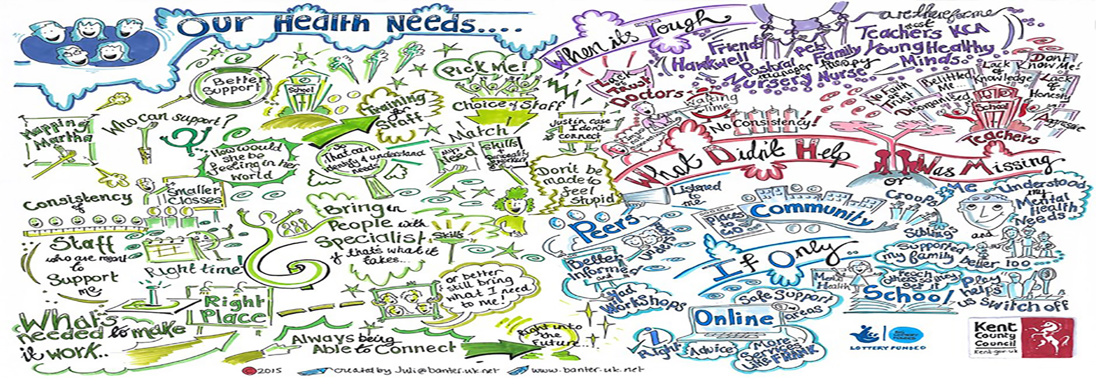 Our Health Needs....
Better
Support
School
Pick Me!
Choice of Staff
Training
for
Staff
Mapping
Martha
Who can support?
How would
she be
feeling in her
world
That can
identify & understand
need
Match
Need
Skills
Justin case
I don't
connect
Don't be
made to
feel
stupid
Consistency of
Smaller
Classes
Staff
who are meant
to
Support
me
Right time!
Right
Place
Bring in
People with
Specialist
Skills
if that's what it
takes...
or better
still bring
what I need
to me!
What's
needed to make
it work..
Always being
Able to Connect
Right into
the
Future...
When it's Tough
are there for me
Friends
Pets
Family
Teachers
KCA
Young Healthy
Minds
Handwell
Pastoral
manager
Therapy
Nursery Nurse
Lack
Trust
Doctors
Waiting
Time
No Consistency!
No Faith
Trust
Disorganised
Belittled
Me
Lack of
Knowledge
Don't
Know Me!
Lack
of
Honesty
Aggressive
School
Teachers
What Didn't Help
or
Was Missing
Listened
to me
Peers
Places
to
go
Community
Groups
Siblings
Me
and
Understood
my
Mental
Health
Needs
Better
Informed
If Only..
Supported
my family
better too...
Had
Workshops
Mental
Health
School
Teach
others
get it
Play
helps
us switch off
Online
Safe Support
areas
i
Right
Advice
More
Services
Like FRANK
LOTTERY FUNDED
Kent
County
Council
Kent.gov.uk
2015
created by Juli@banter-uk.net
www.banter-uk.net